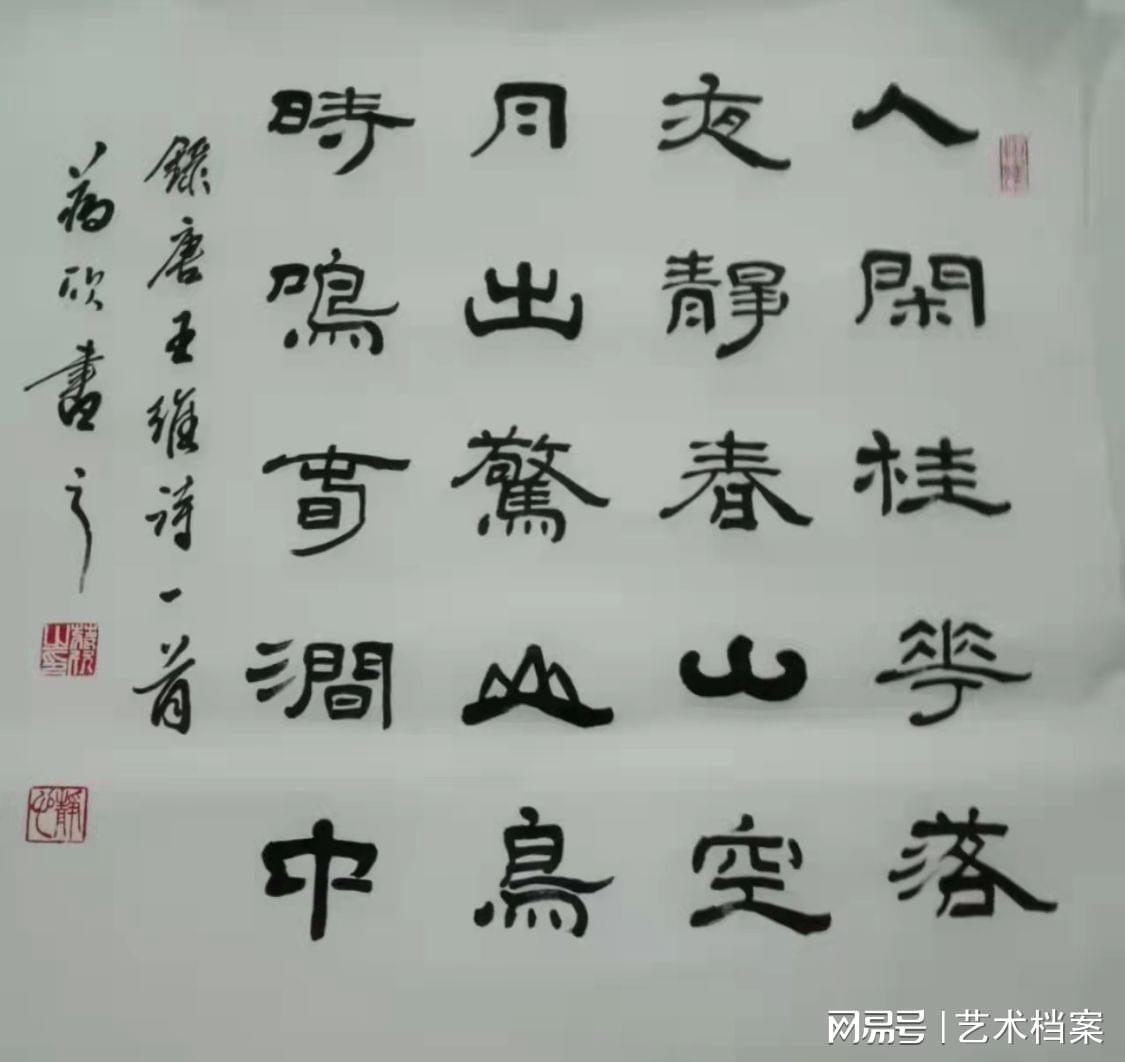 人閑桂華落
夜靜春山空
月出驚山鳥
時鳴旾澗中
錄唐王維詩一首
欣書之
靜心
网易号 | 艺术档案